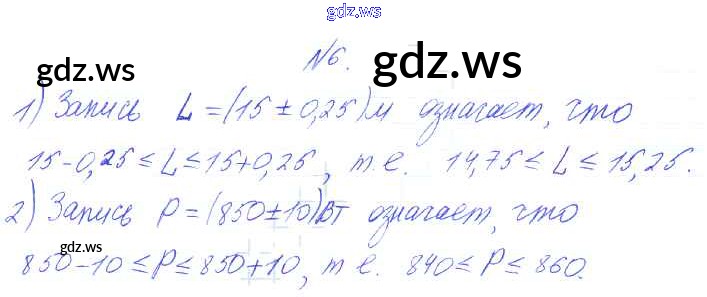 gdz.ws
№6.
gdz.ws
gdz.ws
1) Запись L = (15 ± 0,25) м означает, что
15-0,25 ≤ L ≤ 15+0,25, т.е. 14,75 ≤ L ≤ 15,25.
2) Запись P = (850±10) Вт означает, что
gdz.ws
gdz.ws
850-10 ≤ P ≤ 850+10, т.е. 840 ≤ P ≤ 860.